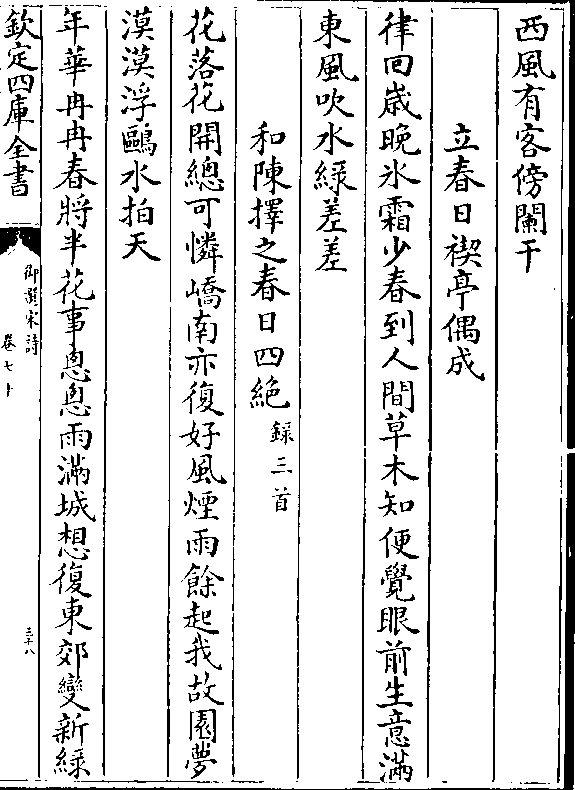 西風有客傍闌干
立春日禊亭偶成
律回歲晚氷霜少春到人間草木知便覺眼前生意滿
東風吹水綠差差
和陳擇之春日四絶錄三首
花落花開總可憐嶠南亦復好風煙雨餘起我故園夢
漠漠浮鷗水拍天
年華冉冉春將半花事悤悤雨滿城想復東郊變新綠
欽定四庫全書
御選宋詩
卷七十
三十八